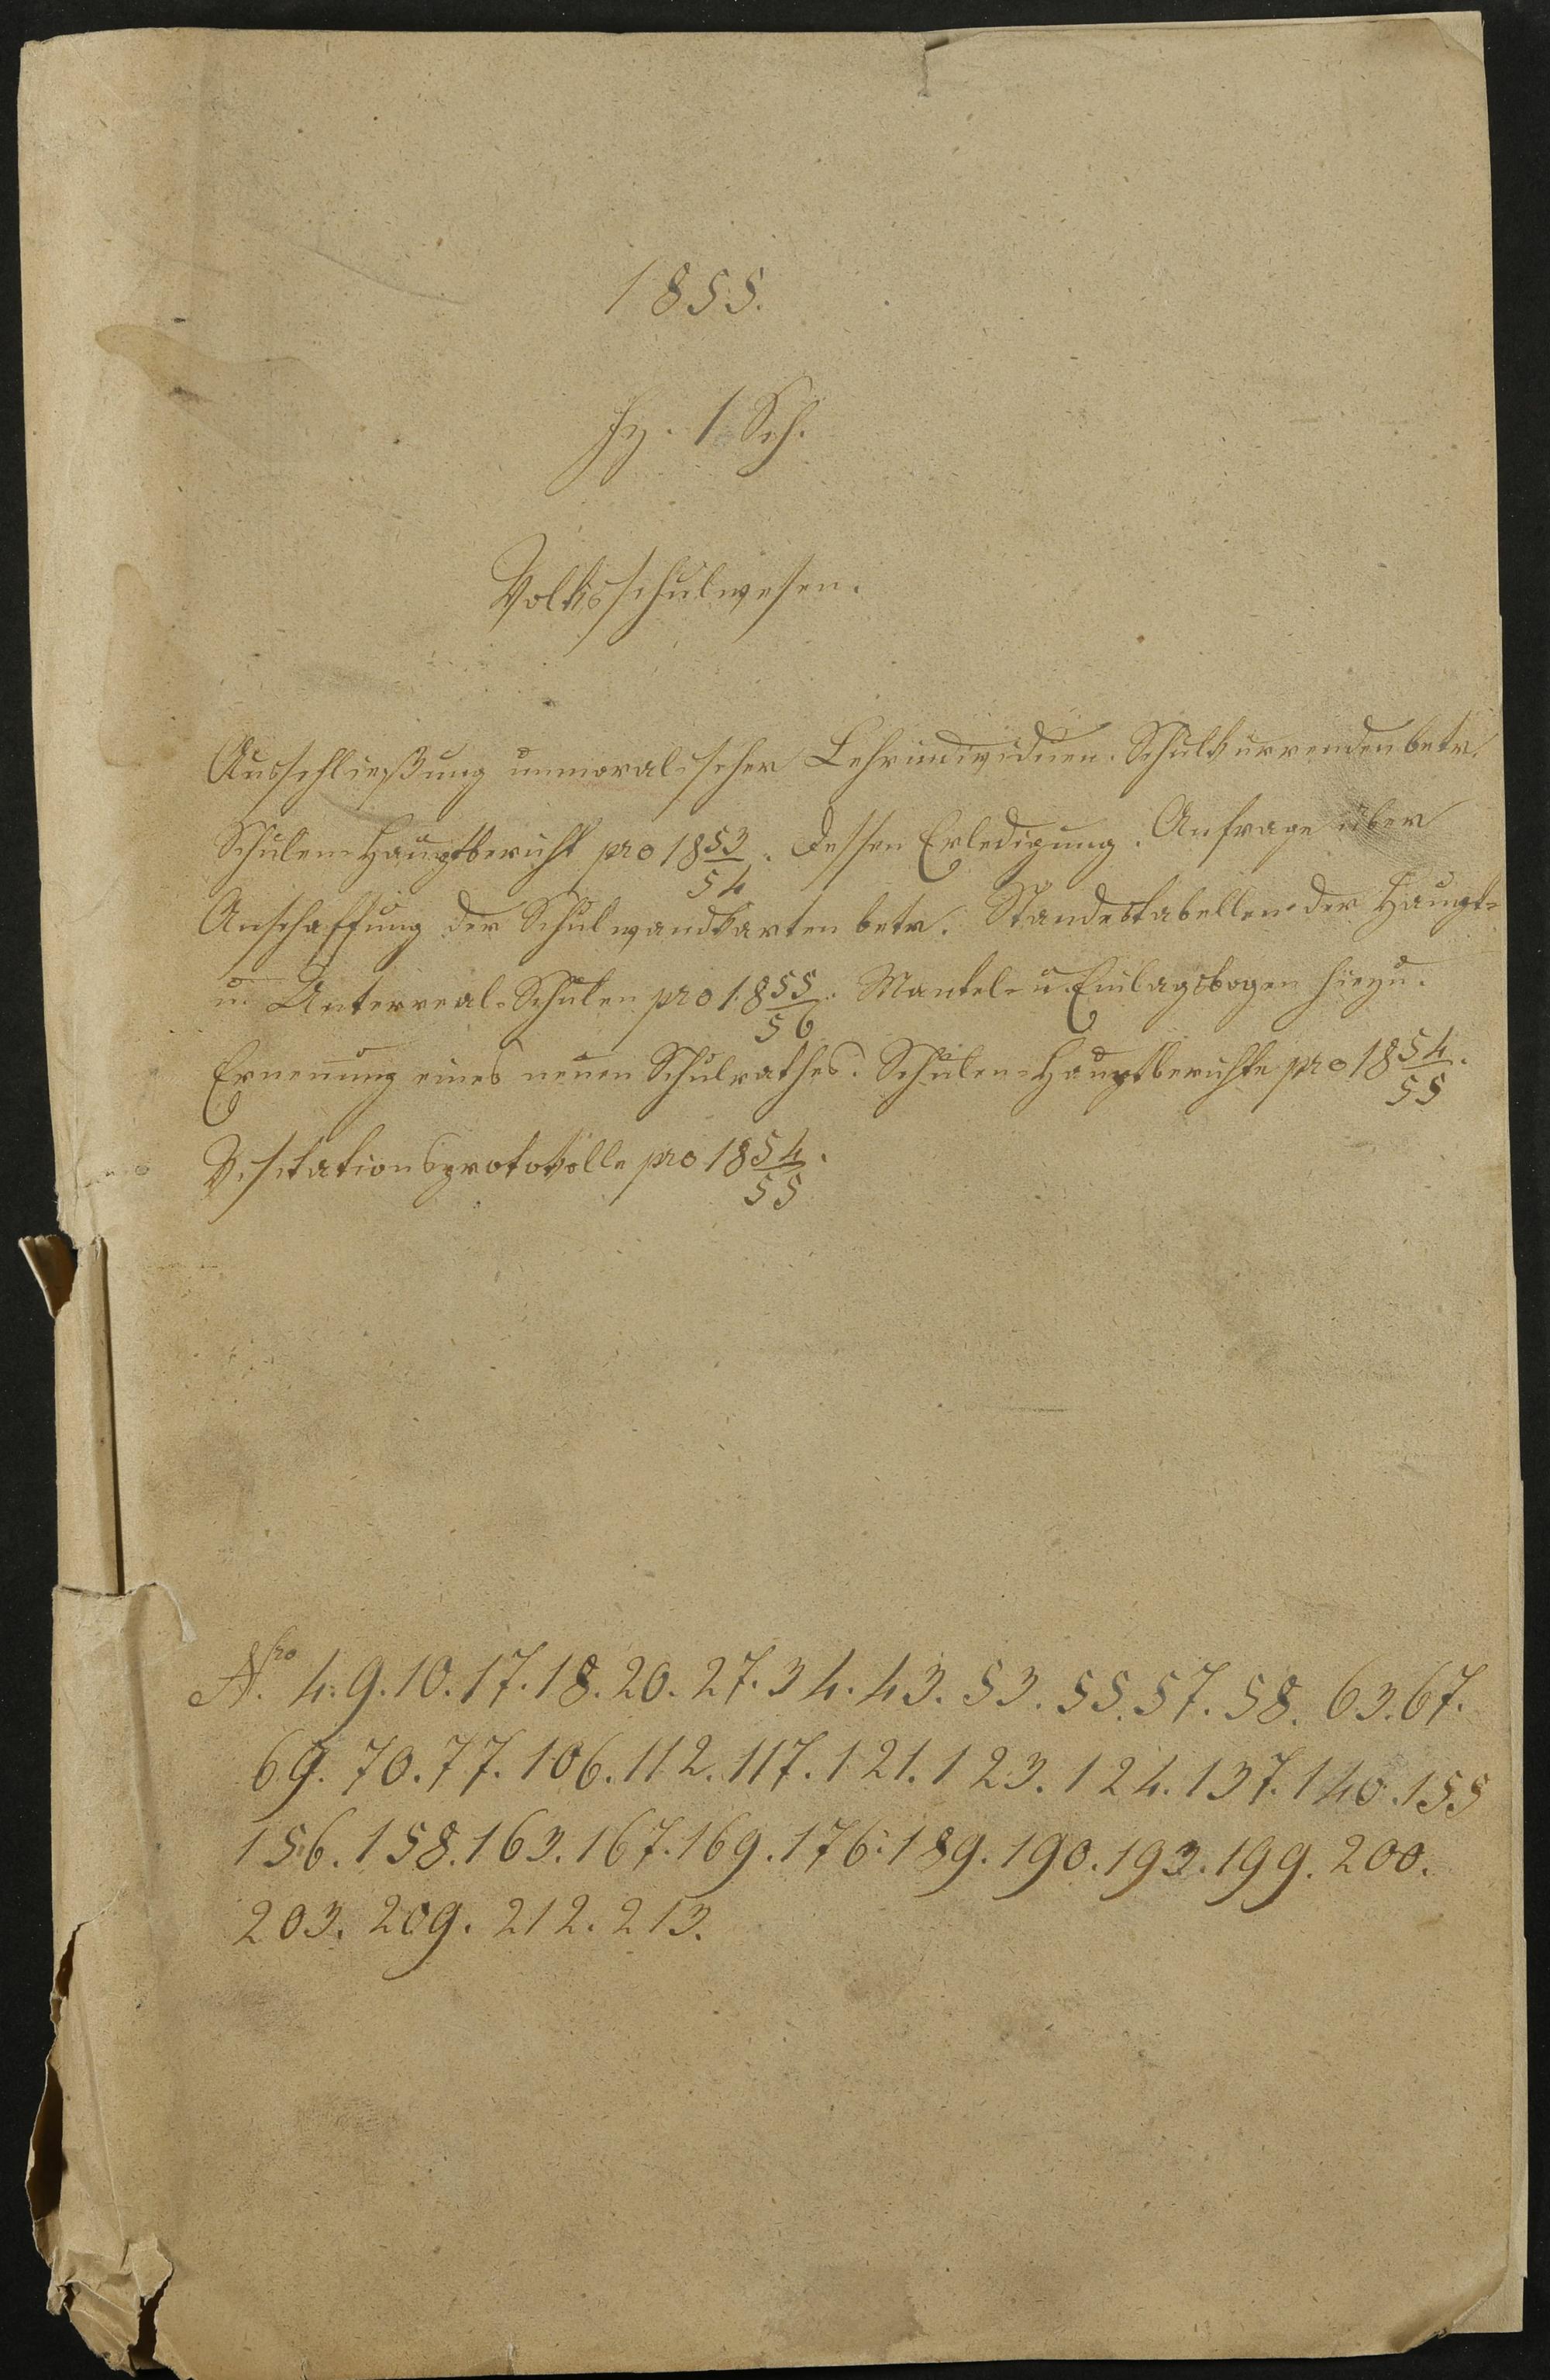 1855.
Fz. 1 Sch.
Volksschulwesen.
Ausschließung unmoralischer Lehrindividuen. Schulkurrenden betr.
Schulen-Hauptbericht pro 1853/54. Dessen Erledigung. Anfrage über
Anschaffung der Schulwandkarten betr. Standestabellen der Haupt-
u. Unterreal-Schulen pro 1855/56. Mantel- u. Einlagsbogen hiezu.
Ernennung eines neuen Schulrathes. Schulen-Hauptberichte pro 1854/55.
Visitationsprotokolle pro 1854/55.
Nro. 4. 9. 10. 17. 18. 20. 27. 34. 43. 53. 55. 57. 58. 63. 67.
69. 70. 77. 106. 112. 117. 121. 123. 124. 137. 140. 155
156. 158. 163. 167. 169. 176. 189. 190. 193. 199. 200.
203. 209. 212. 213.